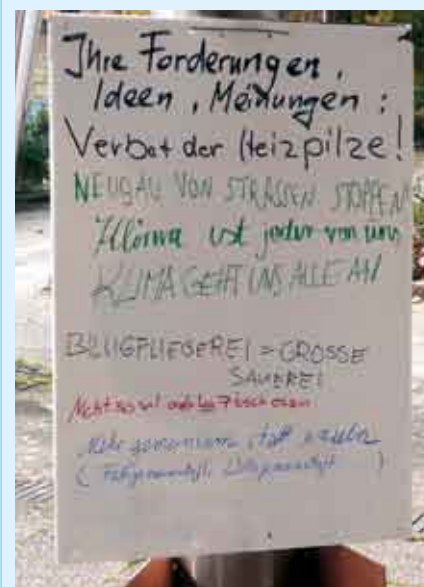 Ihre Forderungen,
Ideen, Meinungen:
Verbot der Heizpilze!
NEUBAU VON STRASSEN STOPPEN
Klima ist jeder von uns
KLIMA GEHT UNS ALLE AN
BILLIGFLIEGEREI = GROSSE
SAUEREI
Nicht so viel
Mehr gemeinsam statt